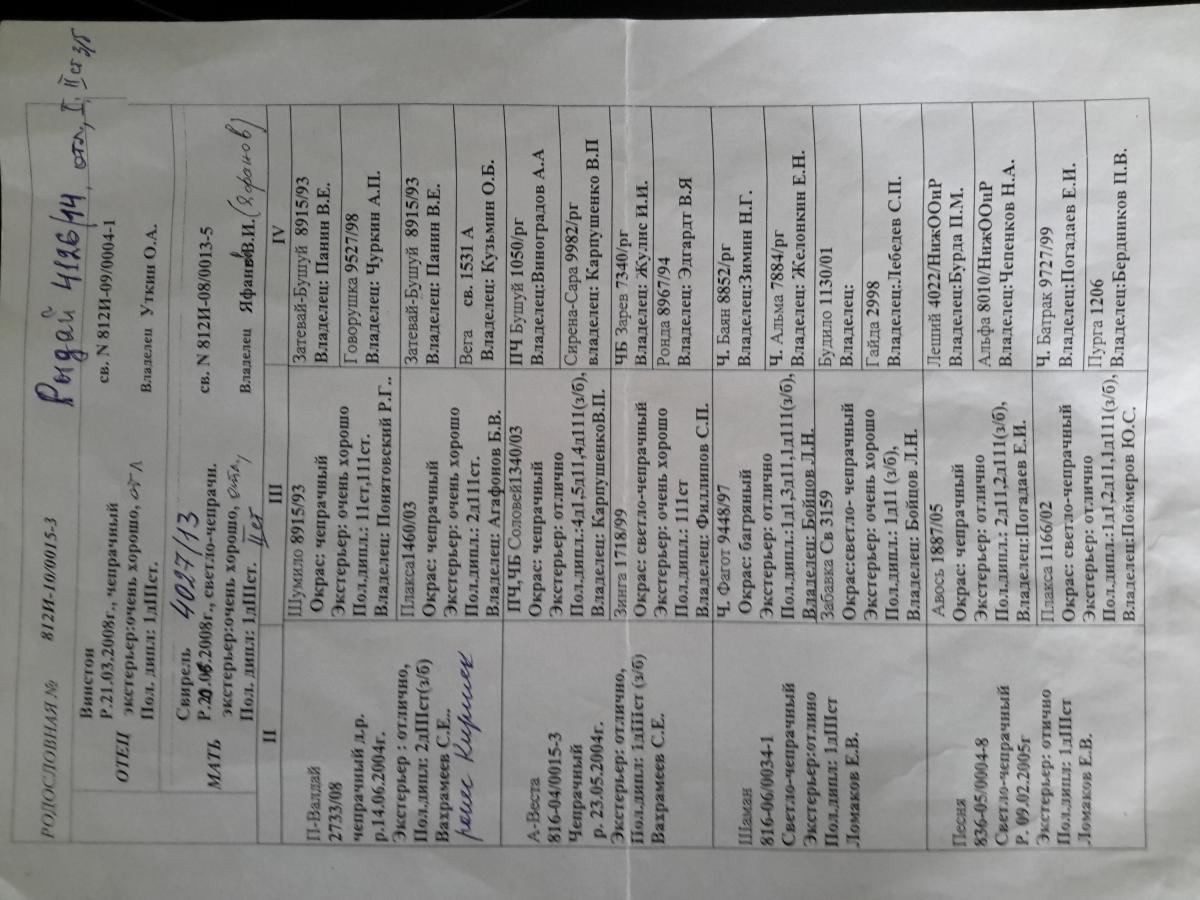 Рыдай 4126/14, отл, I, IIст з/б
РОДОСЛОВНАЯ № 812И-10/0015-3
ОТЕЦ
Винстон св. N 812И-09/0004-1
Р.21.03.2008г., чепрачный
экстерьер:очень хорошо, отл
Пол. дипл: 1дIIIст. Владелец Уткин О.А.
МАТЬ
Свирель 4027/13 св. N 812И-08/0013-5
.2008г., светло-чепрачн.
экстерьер:очень хорошо, отл,
Пол. дипл: 1дIIIст. IIст Владелец В.И.
II III IV
П-Валдай
2733/08
чепрачный д.р.
р.14.06.2004г.
Экстерьер : отлично,
Пол.дипл: 2дIIIст(з/б)
Вахрамеев С.Е..
А-Веста
816-04/0015-3
Чепрачный
р. 23.05.2004г.
Экстерьер: отлично,
Пол.дипл: 1дIIIст (з/б)
Вахрамеев С.Е.
Шаман
816-06/0034-1
Светло-чепрачный
Экстерьер:отлично
Пол.дипл: 1дIIIст
Ломаков Е.В.
Песня
836-05/0004-8
Светло-чепрачный
Р. 09.02.2005г
Экстерьер: отично
Пол.дипл: 1дIIIст
Ломаков Е.В.
Шумило 8915/93
Окрас: чепрачный
Экстерьер: очень хорошо
Пол.дипл.: 11ст,111ст.
Владелец: Понятовский Р.Г..
Плакса1460/03
Окрас: чепрачный
Экстерьер: очень хорошо
Пол.дипл.: 2д111ст.
Владелец: Агафонов Б.В.
ПЧ,ЧБ Соловей1340/03
Окрас: чепрачный
Экстерьер: отлично
Пол.дипл.:4д1,5д11,4д111(з/б),
Владелец: КарпушенкоВ.П.
Зинга 1718/99
Окрас: светло-чепрачный
Экстерьер: очень хорошо
Пол.дипл.: 11ст
Владелец: Филлипов С.П.
Ч. Фагот 9448/97
Окрас: багряный
Экстерьер: отлично
Пол.дипл.: 1д1,3д11,1д111(з/б),
Владелец: Бойцов Л.Н.
Забавка Св 3159
Окрас:светло-чепрачный
Экстерьер: очень хорошо
Пол.дипл.: 1д11 (з/б),
Владелец: Бойцов Л.Н.
Авось 1887/05
Окрас: чепрачный
Экстерьер: отлично
Пол.дипл.: 2д11,2д111(з/б),
Владелец:Погадаев Е.И.
Плакса 1166/02
Окрас: светло-чепрачный
Экстерьер: отлично
Пол.дипл.:1д1,2д11,1д111(з/б),
Владелец:Поймеров Ю.С.
Затевай-Бушуй 8915/93
Владелец: Панин В.Е.
Говорушка 9527/98
Владелец: Чуркин А.П.
Затевай-Бушуй 8915/93
Владелец: Панин В.Е.
Вега св. 1531 А
Владелец: Кузьмин О.Б.
ПЧ Бушуй 1050/рг
Владелец:Виноградов А.А
Сирена-Сара 9982/рг
владелец: Карпушенко В.П
ЧБ Зарев 7340/рг
Владелец: Жулис И.И.
Ронда 8967/94
Владелец: Эдгардт В.Я
Ч. Баян 8852/рг
Владелец:Зимин Н.Г.
Ч. Альма 7884/рг
Владелец: Желонкин Е.Н.
Будило 1130/01
Владелец:
Гайда 2998
Владелец:Лебедев С.П.
Леший 4022/НижООиР
Владелец:Бурда П.М.
Альфа 8010/НижООиР
Владелец:Чепенков Н.А.
Ч. Батрак 9727/99
Владелец:Погадаев Е.И.
Пурга 1206
Владелец:Бердников П.В.